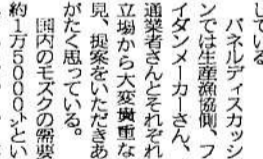 している。
　パネルディスカッシ
ンでは生産漁協側、フ
イダンメーカーさん、
通業者さんとそれぞれ
立場から大変貴重な
見、提案をいただきあ
がたく思っている。
　国内のモズクの需要
約1万5000㌧とい